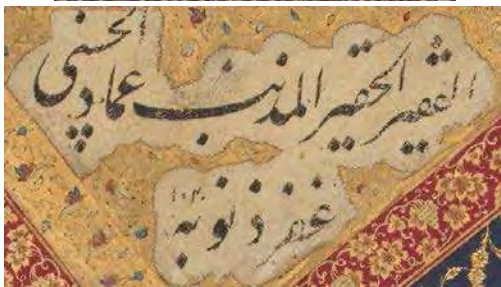 الفقیر الحقیر المذنب عماد الحسنی
غفر ذنوبه ۱۰۲۰